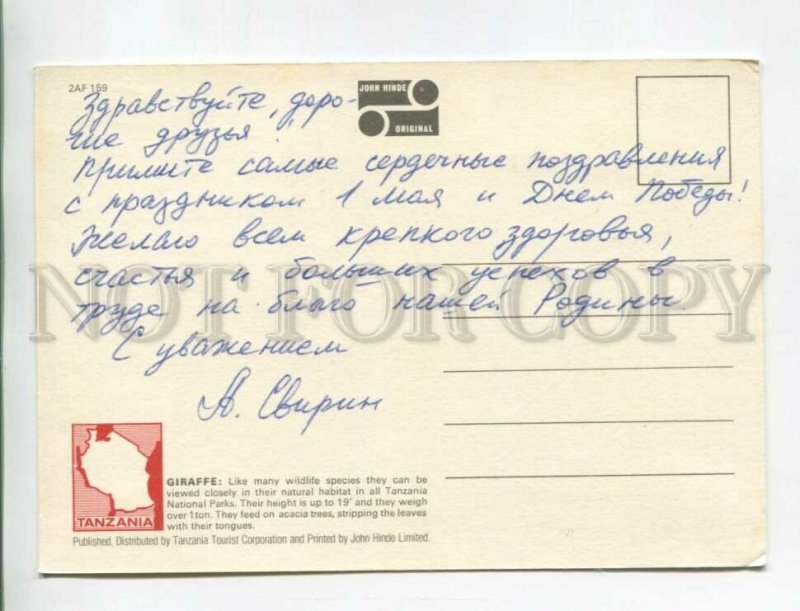 2AF 159
JOHN HINDE
ORIGINAL
Здравствуйте, доро-
гие друзья
Примите самые сердечные поздравления
с праздником 1 мая и Днем Победы!
Желаю всем крепкого здоровья,
счастья и больших успехов в
труде на благо нашей Родины.
С уважением
А. Свирин
NOT FOR COPY
TANZANIA
GIRAFFE: Like many wildlife species they can be
viewed closely in their natural habitat in all Tanzania
National Parks. Their height is up to 19' and they weigh
over 1ton. They feed on acacia trees, stripping the leaves
with their tongues.
Published, Distributed by Tanzania Tourist Corporation and Printed by John Hinde Limited.